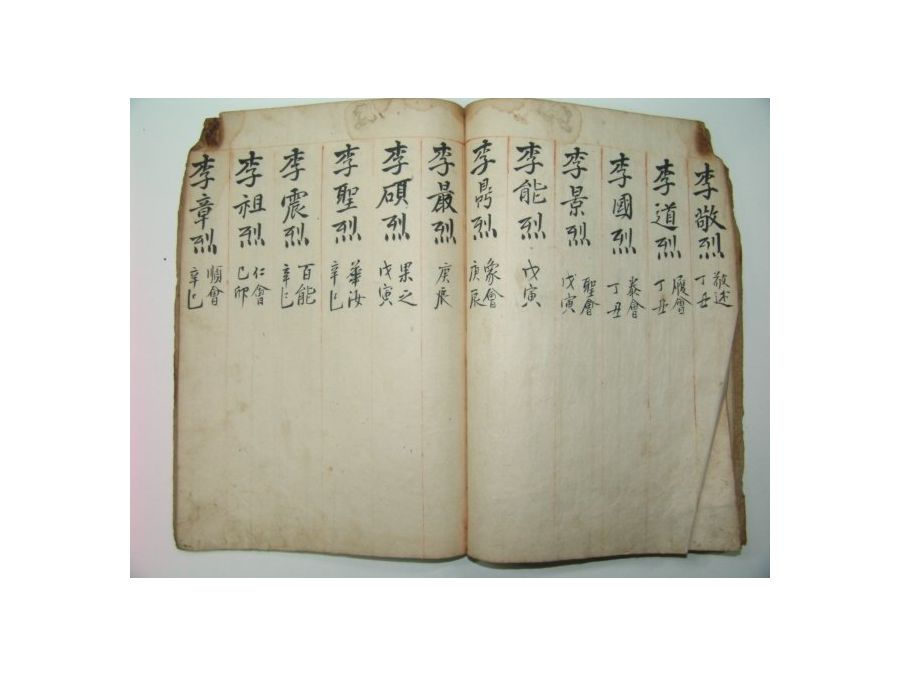 李敬烈 敬述 丁丑
李道烈 履會 丁丑
李國烈 泰會 丁丑
李景烈 聖會 戊寅
李能烈 戊寅
李晶烈 象會 庚辰
李最烈 庚辰
李碩烈 果之 戊寅
李聖烈 華汝 辛巳
李震烈 百能 辛巳
李祖烈 仁會 己卯
李章烈 順會 辛巳